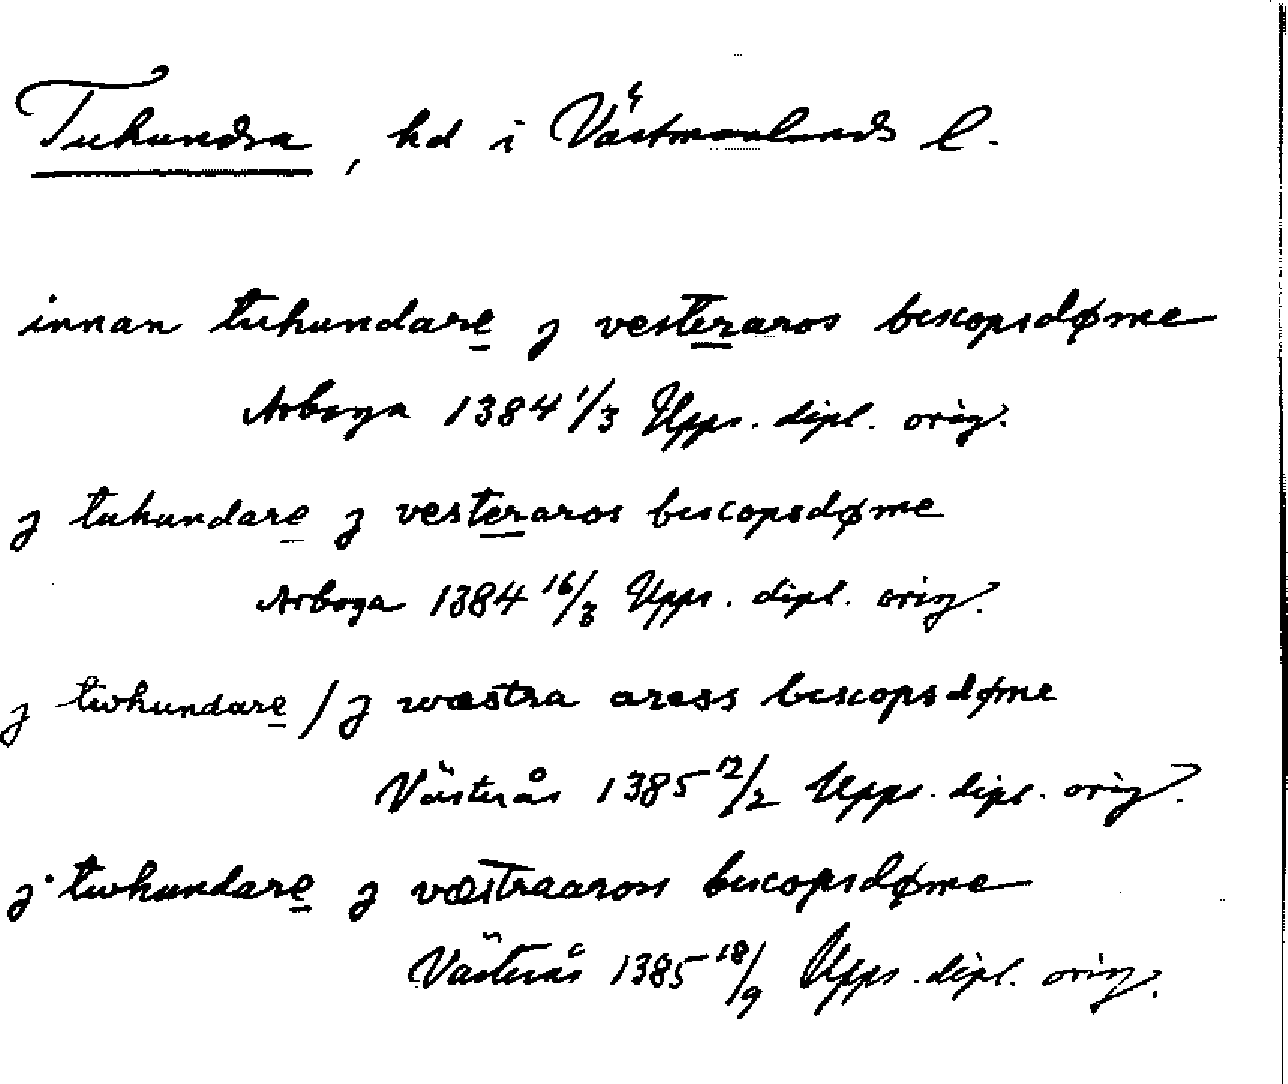 Tuhundra, hd i Västmanlands l.
innan tuhundare j vesteraros biscopsdøme
Arboga 1384 1/3 Upps. dipl. orig.
j tuhundare j vesteraros biscopsdøme
Arboga 1384 16/3 Upps. dipl. orig.
j twhundare / j wæstra aross biscopsdøme
Västerås 1385 12/2 Upps. dipl. orig.
j twhundare j væstraaross biscopsdøme
Västerås 1385 18/9 Upps. dipl. orig.